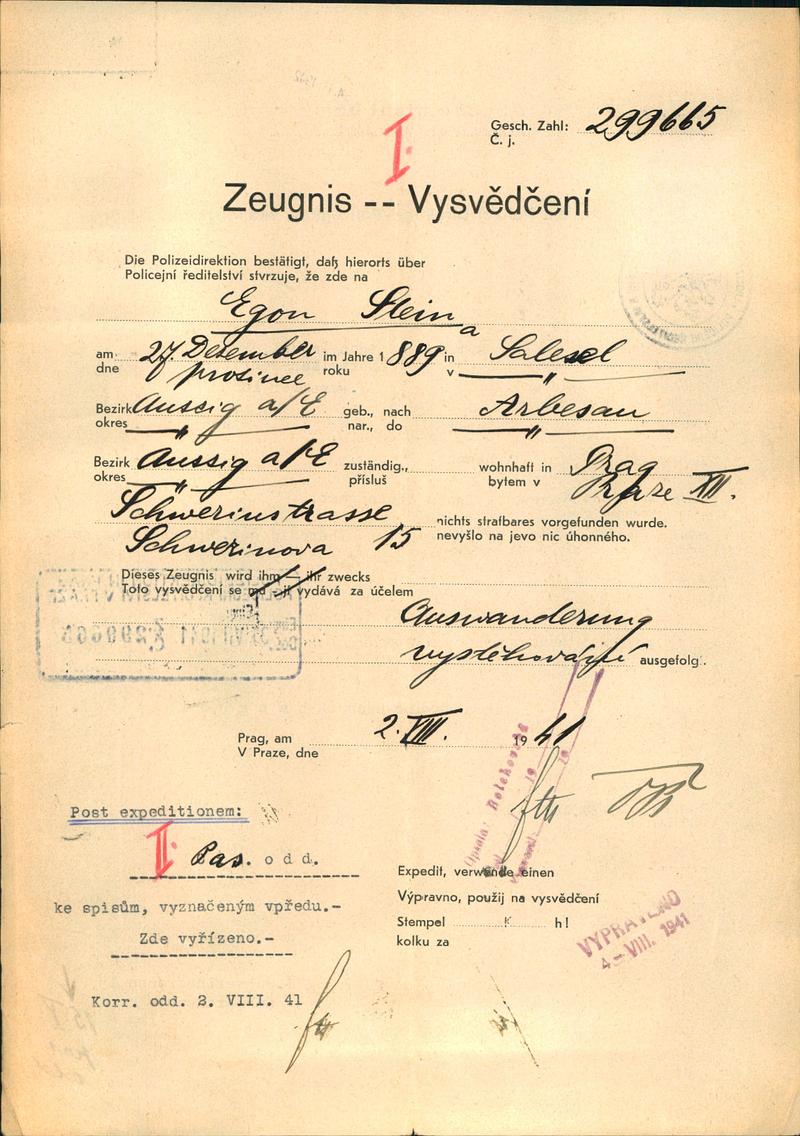 Gesch. Zahl: 299665
Č. j.
I.
Zeugnis -- Vysvědčení
Die Polizeidirektion bestätigt, daß hierorts über
Policejní ředitelství stvrzuje, že zde na
Egon Stein
a
am 27. Dezember im Jahre 1889 in Salesel
dne prosince roku v "
Bezirk Aussig a/E geb., nach Arbesau
okres " nar., do "
Bezirk Aussig a/E zuständig., wohnhaft in Prag
okres " přísluš bytem v Praze XII.
Schwerinstrasse nichts strafbares vorgefunden wurde.
Schwerinova 15 nevyšlo na jevo nic úhonného.
Dieses Zeugnis wird ihm — ihr zwecks
Toto vysvědčení se mu - jí vydává za účelem
Auswanderung
vystěhování ausgefolg.
Prag, am 2. VIII. 1941
V Praze, dne
Post expeditionem:
II. Pas. odd.
ke spisům, vyznačeným vpředu.-
Zde vyřízeno.-
Korr. odd. 2. VIII. 41
Expedit, verwende einen
Výpravno, použij na vysvědčení
Stempel K h!
kolku za
VYPRAVENO
4-VIII. 1941